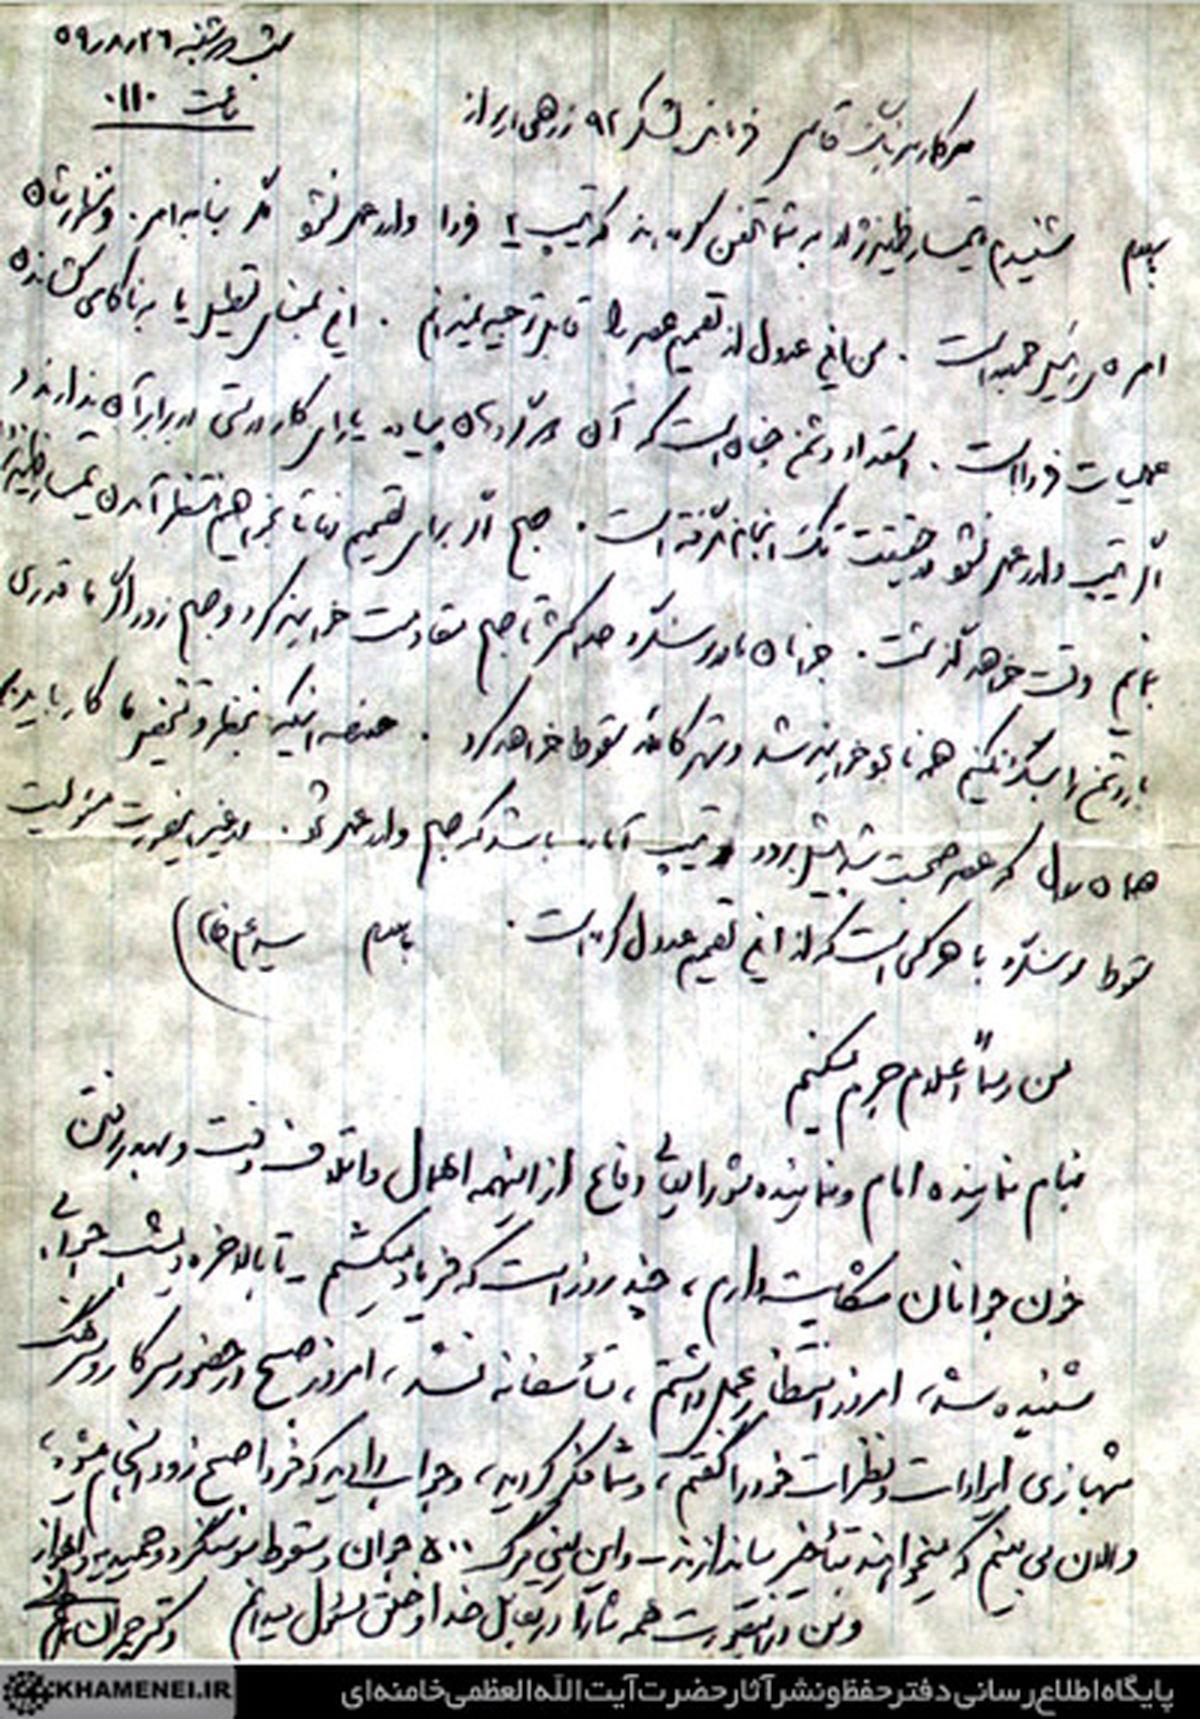 شب دوشنبه ۵۹/۸/۲۶
ساعت ۰۱۱۰
سرکار سرهنگ قاسمی فرمانده لشکر ۹۲ زرهی اهواز
با سلام شنیدم تیمسار ظهیرنژاد به شما تلفن کرده‌اند که تیپ ۲ فردا وارد عمل نشود مگر بنا به امر.
امر من این عدول از تصمیم عصر را قابل توجیه نمیدانم. این بمعنای تعطیل یا به ناکامی کشانده
عملیات فرداست. استعداد دشمن چنان است که آن گردانهای پیاده یارای کار درستی در برابر آن ندارند و
اگر تیپ وارد عمل نشود در حقیقت تک انجام نگرفته است. صبح اگر برای تصمیم نهایی بخواهیم منتظر آمدن تیمسار ظهیرنژاد
بمانیم وقت خواهد گذشت. جوانان ما در سوسنگرد حداکثر تا صبح مقاومت خواهند کرد و صبح زود اگر ما قدری
بار دشمن را سبک نکنیم همه نابود خواهند شد و شهر کاملا سقوط خواهد کرد. خلاصه اینکه بنظر و تشخیص ما کار باید به
همان روال که عصر صحبت شد پیش برود و تیپ آماده باشد که صبح وارد عمل شود. در غیر اینصورت مسئولیت
سقوط سوسنگرد با هر کسی است که از این تصمیم عدول کرده است. با سلام سید علی خامنه‌ای
من رسماً اعلام جرم میکنم
بنام نماینده امام و نماینده شورایعالی دفاع از اینهمه اهمال و اتلاف وقت و بهدر رفتن
خون جوانان شکایت دارم، چند روز است که فریاد میکشم ـ تا بالاخره دیشب جوابی
شنیده شد، امروز انتظار عمل داشتم، متأسفانه نشد، امروز صبح در حضور سرکار سرهنگ
شهبازی ایرادات و نظرات خود را گفتم، و شما فکر کردید، و جواب دادید که فردا صبح زود انجام میشود،
و الان می بینم که میخواهند بتأخیر بیاندازند ـ و این یعنی مرگ ۵۰۰ جوان و سقوط سوسنگرد و حمیدیه و اهواز
و من در اینصورت همه شما را در مقابل خدا و خلق مسئول میدانم دکتر چمران
KHAMENEI.IR
پایگاه اطلاع‌رسانی دفتر حفظ و نشر آثار حضرت آیت الله العظمی خامنه‌ای